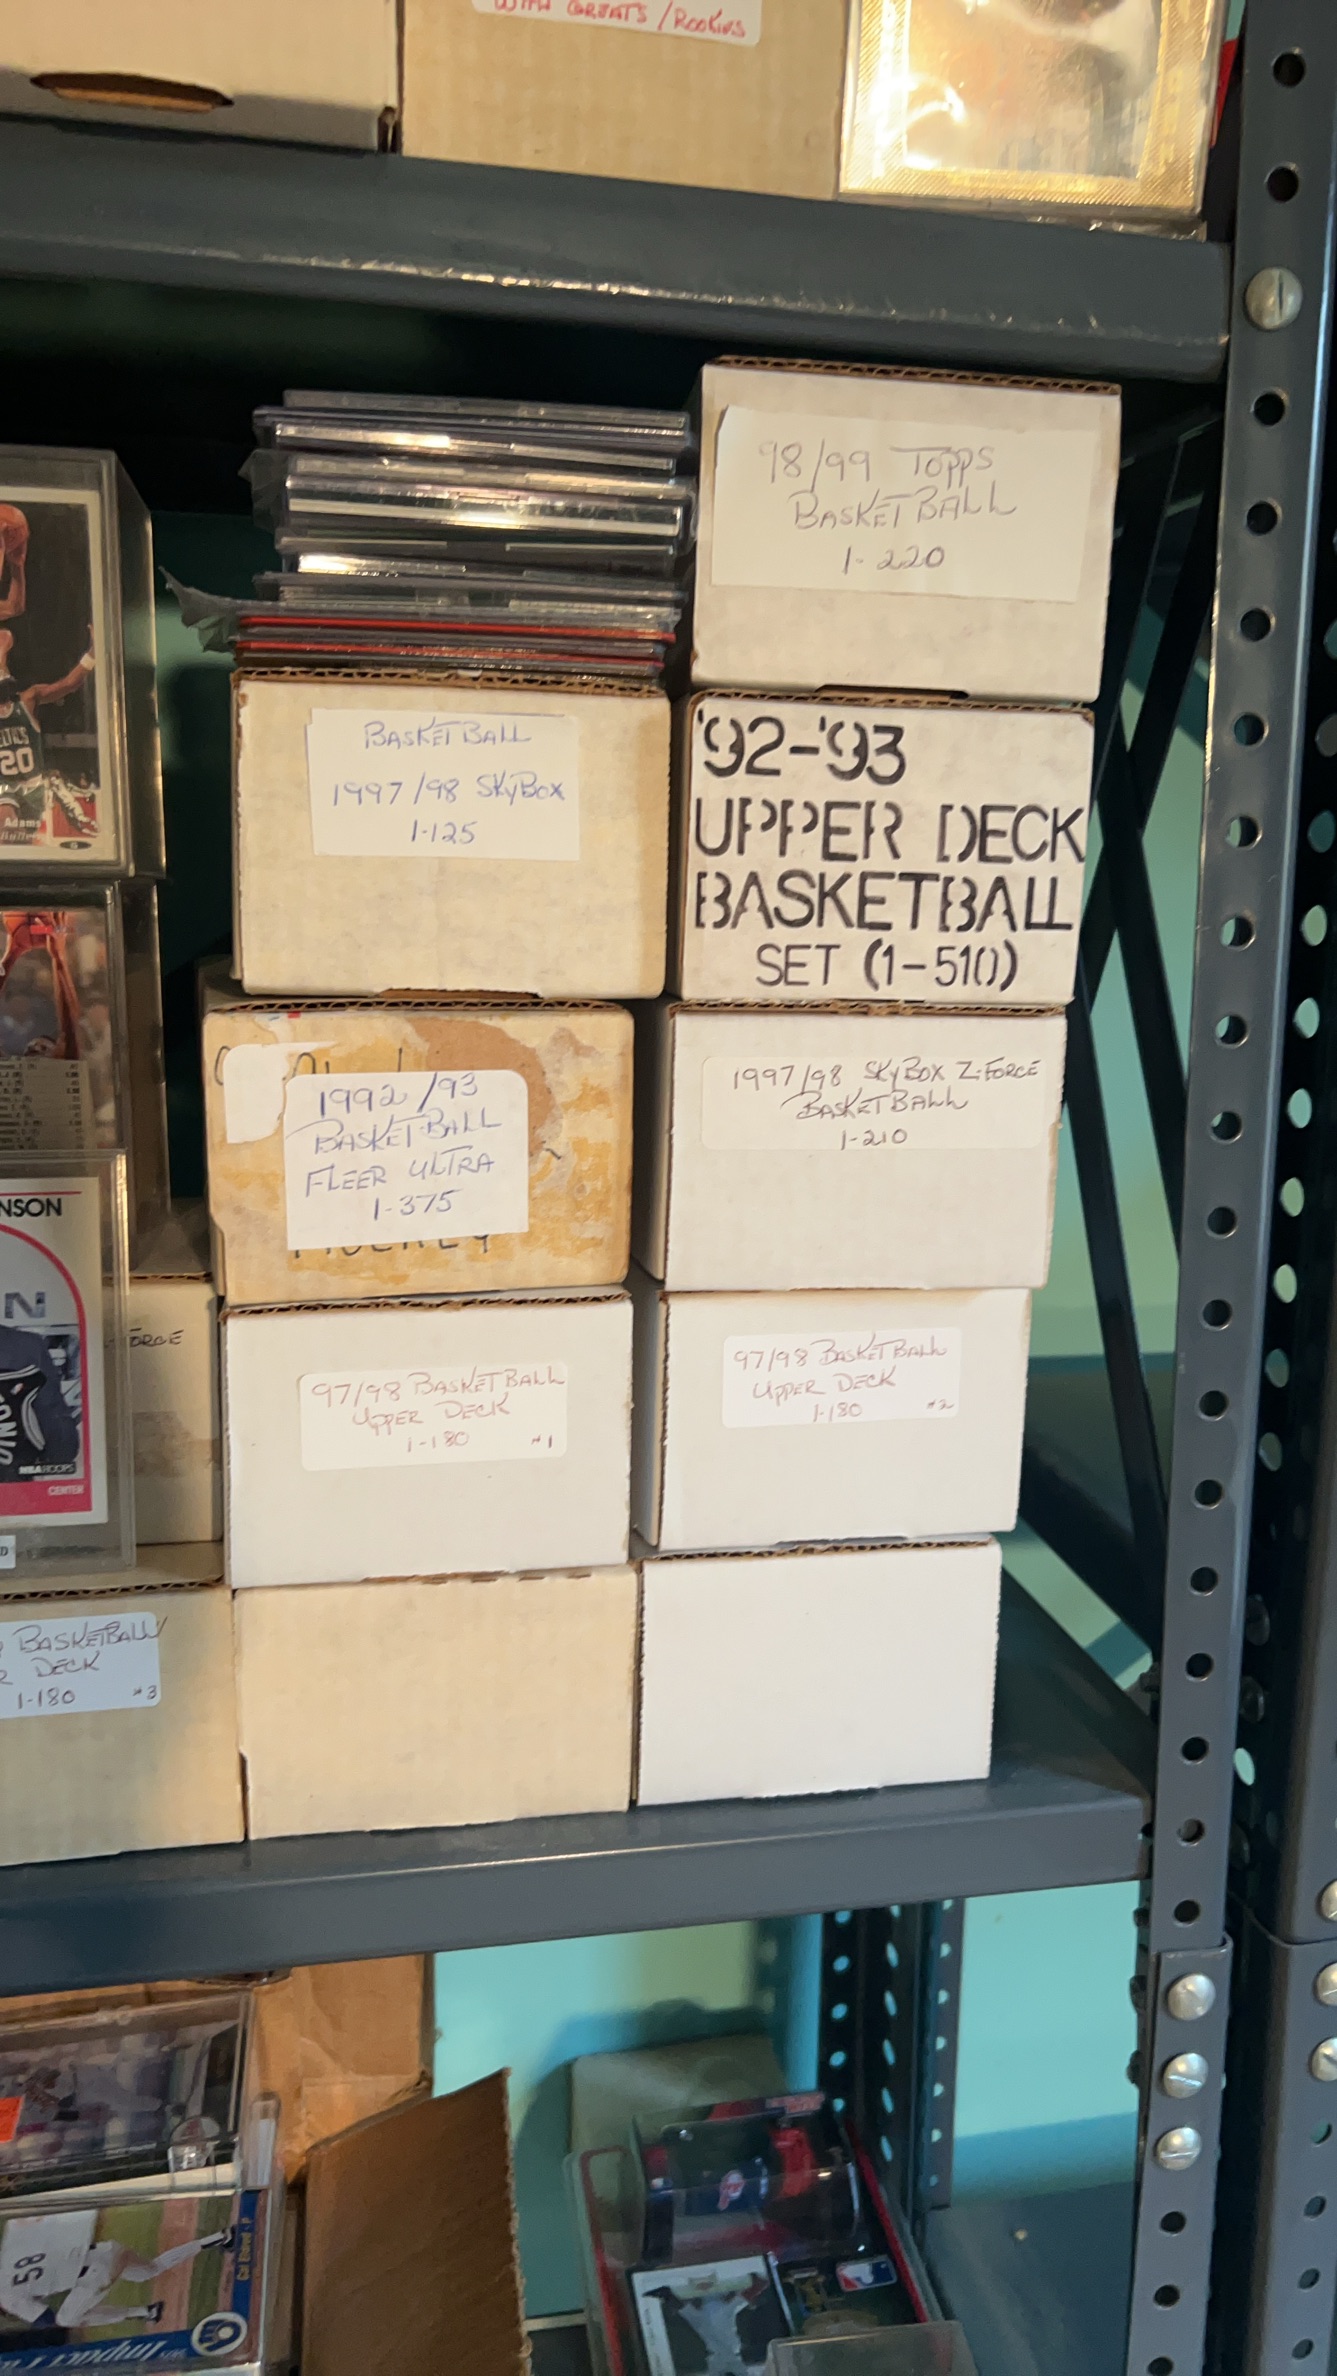 WITH GREATS / ROOKIES
98/99 TOPPS
BASKETBALL
1-220
BASKETBALL
1997/98 SKYBOX
1-125
'92-'93
UPPER DECK
BASKETBALL
SET (1-510)
1992/93
BASKETBALL
FLEER ULTRA
1-375
1997/98 SKYBOX Z-FORCE
BASKETBALL
1-210
97/98 BASKETBALL
UPPER DECK
1-180 #1
97/98 BASKETBALL
UPPER DECK
1-180 #2
20
Adams
NSON
N
NBA HOOPS
CENTER
D
FORCE
BASKETBALL
R DECK
1-180 #3
58